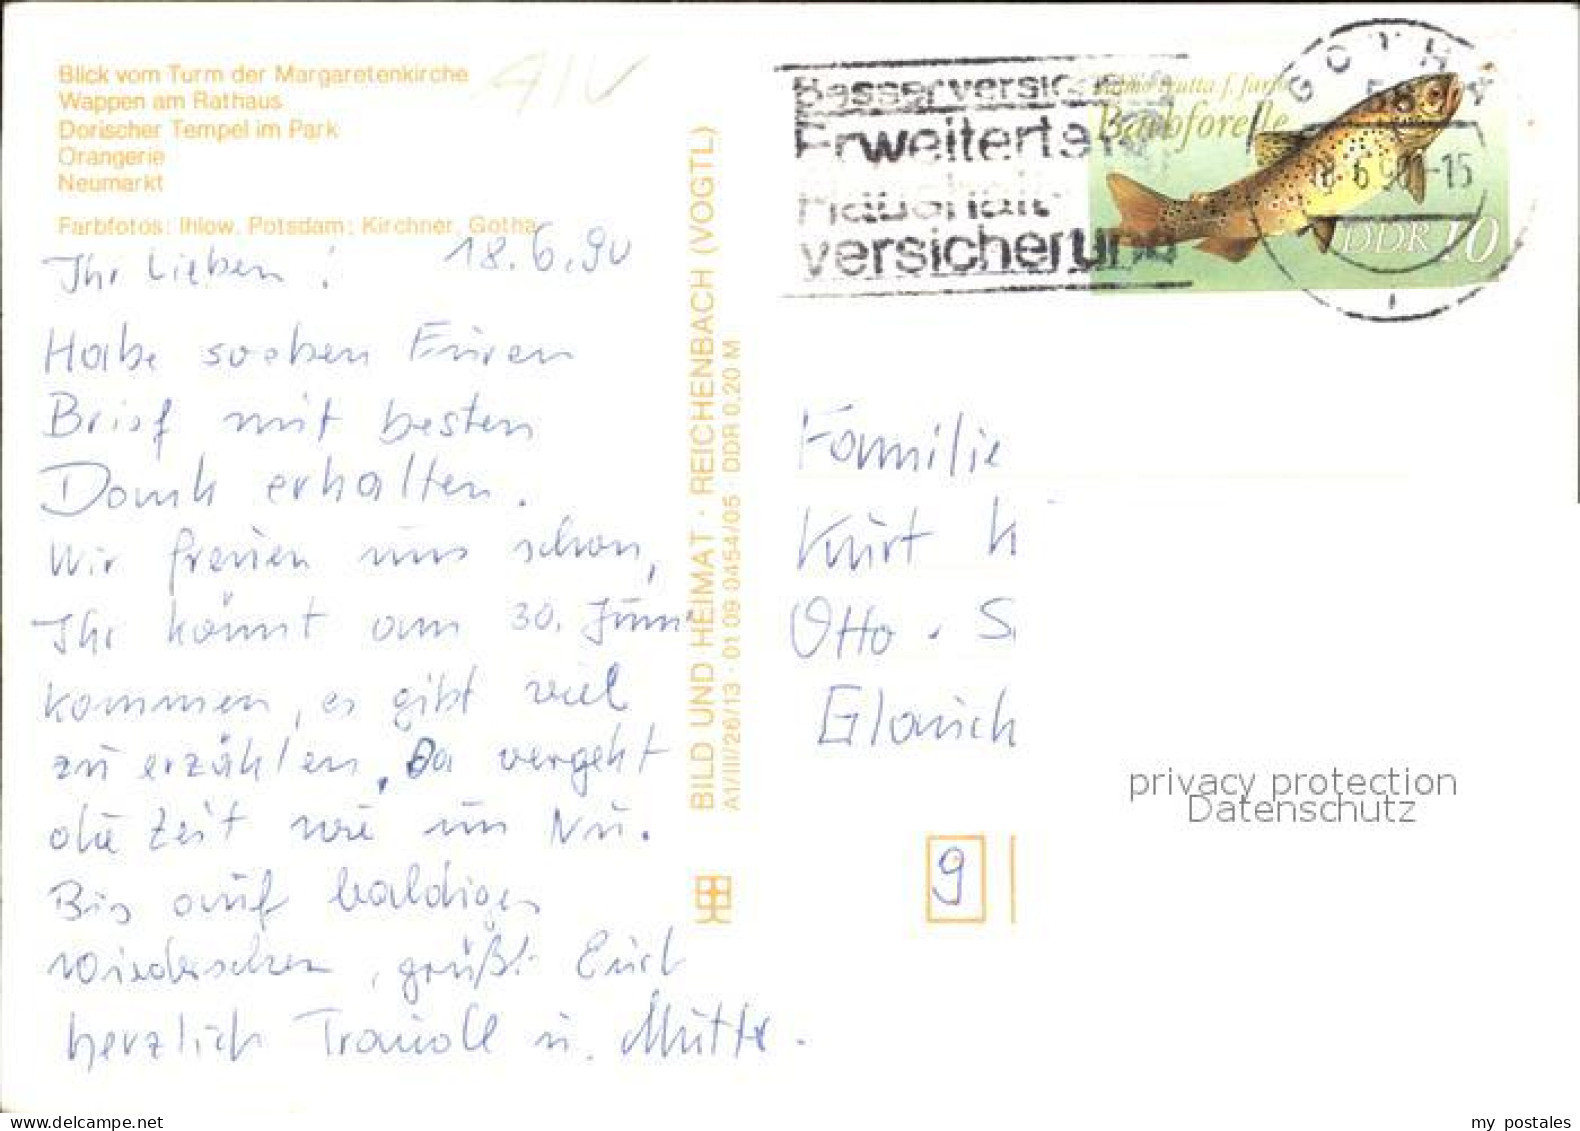 Blick vom Turm der Margaretenkirche
Wappen am Rathaus
Dorischer Tempel im Park
Orangerie
Neumarkt
Farbfotos: Ihlow, Potsdam; Kirchner, Gotha
18.6.90
Ihr Lieben!
Habe soeben Euren
Brief mit besten
Dank erhalten.
Wir freuen uns schon,
Ihr könnt am 30. Juni
kommen, es gibt viel
zu erzählen. Da vergeht
die Zeit wie im Nu.
Bis auf baldiges
Wiedersehen, grüßt Euch
herzlich Traudl u. Mutter.
BILD UND HEIMAT · REICHENBACH (VOGTL)
A1/III/26/13 · 01 09 0454/05 · DDR 0,20 M
Erweiterte
Haushalt-
versicherung
Bachforelle
DDR 10
GOTHA
58
18.6.90-15
1
Familie
Kurt
Otto-
Glauch
9
privacy protection
Datenschutz
my postales